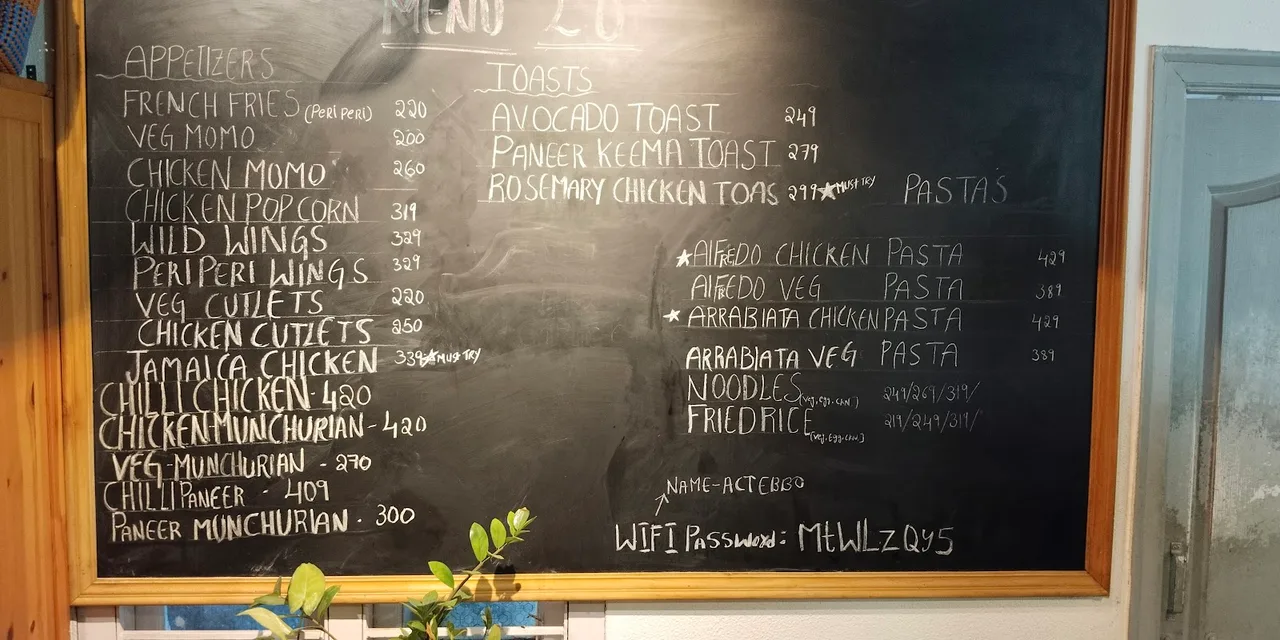 MENU 2.0
APPETIZERS
FRENCH FRIES (Peri Peri) 220
VEG MOMO 200
CHICKEN MOMO 260
CHICKEN POPCORN 319
WILD WINGS 329
PERI PERI WINGS 329
VEG CUTLETS 220
CHICKEN CUTLETS 250
JAMAICA CHICKEN 339 ★MUST TRY
CHILLI CHICKEN - 420
CHICKEN MUNCHURIAN - 420
VEG-MUNCHURIAN - 270
CHILLI PANEER - 409
PANEER MUNCHURIAN - 300
TOASTS
AVOCADO TOAST 249
PANEER KEEMA TOAST 279
ROSEMARY CHICKEN TOAS 299 ★MUST TRY
PASTA'S
★ALFREDO CHICKEN PASTA 429
ALFREDO VEG PASTA 389
★ARRABIATA CHICKEN PASTA 429
ARRABIATA VEG PASTA 389
NOODLES (Veg, egg, CKN) 249/269/319/
FRIED RICE (Veg, Egg, CKN) 219/249/319/
NAME-ACTEBBO
WIFI Password: MtWLzQy5